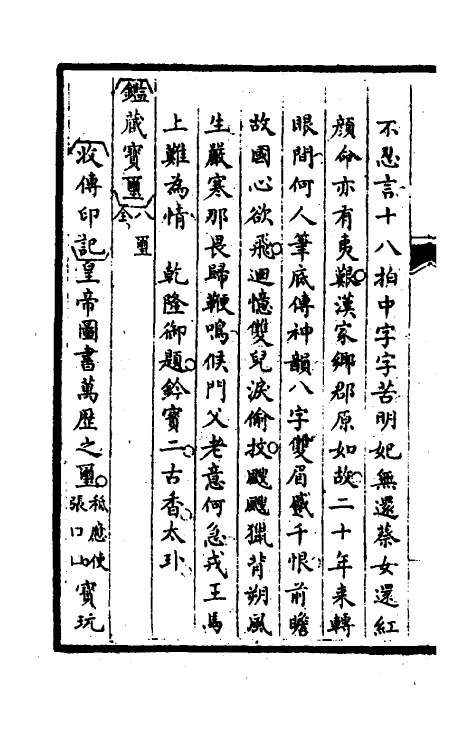 不忍言十八拍中字字苦明妃無還蔡女還紅
顏命亦有夷艱漢家鄉郡原如故二十年來轉
眼間何人筆底傳神韻八字雙眉蹙千恨前瞻
故國心欲飛迴憶雙兒淚偷抆颼颼獵背朔風
生嚴寒那畏歸鞭鳴候門父老意何急戎王馬
上難為情 乾隆御題鈐寶二古香太卦
鑑藏寶璽八璽全
收傳印記皇帝圖書萬歷之璽秪應使張口山寶玩